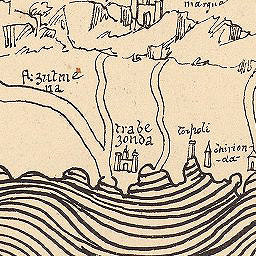 margna
A:zulme
na
trabe
zonda
tripoli
chirion
da